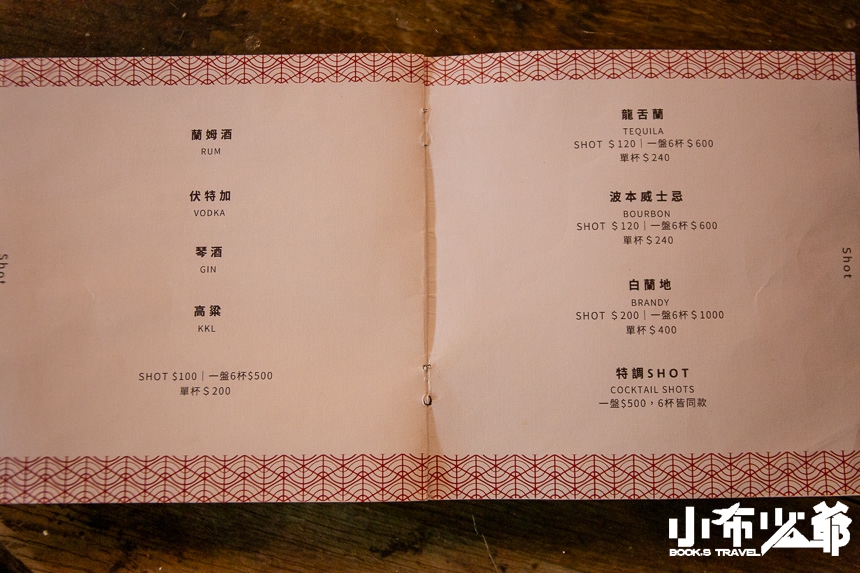 蘭姆酒
RUM
伏特加
VODKA
琴酒
GIN
高粱
KKL
SHOT $100｜一盤6杯$500
單杯＄200
Shot
龍舌蘭
TEQUILA
SHOT ＄120｜一盤6杯＄600
單杯＄240
波本威士忌
BOURBON
SHOT ＄120｜一盤6杯＄600
單杯＄240
白蘭地
BRANDY
SHOT ＄200｜一盤6杯＄1000
單杯＄400
特調SHOT
COCKTAIL SHOTS
一盤$500，6杯皆同款
Shot
小布少爺
BOOK.S TRAVEL